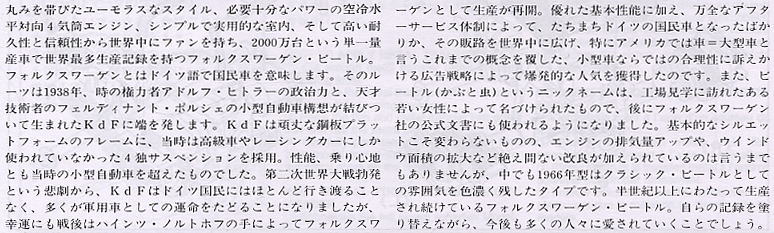 丸みを帯びたユーモラスなスタイル、必要十分なパワーの空冷水
平対向4気筒エンジン、シンプルで実用的な室内、そして高い耐
久性と信頼性から世界中にファンを持ち、2000万台という単一量
産車で世界最多生産記録を持つフォルクスワーゲン・ビートル。
フォルクスワーゲンとはドイツ語で国民車を意味します。そのル
ーツは1938年、時の権力者アドルフ・ヒトラーの政治力と、天才
技術者のフェルディナント・ポルシェの小型自動車構想が結びつ
いて生まれたKdFに端を発します。KdFは頑丈な鋼板プラッ
トフォームのフレームに、当時は高級車やレーシングカーにしか
使われていなかった4独サスペンションを採用。性能、乗り心地
とも当時の小型自動車を超えたものでした。第二次世界大戦勃発
という悲劇から、KdFはドイツ国民にはほとんど行き渡ること
なく、多くが軍用車としての運命をたどることになりましたが、
幸運にも戦後はハインツ・ノルトホフの手によってフォルクスワ
ーゲンとして生産が再開。優れた基本性能に加え、万全なアフタ
ーサービス体制によって、たちまちドイツの国民車となったばか
りか、その販路を世界中に広げ、特にアメリカでは車＝大型車と
言うこれまでの概念を覆した、小型車ならではの合理性に訴えか
ける広告戦略によって爆発的な人気を獲得したのです。また、ビ
ートル(かぶと虫)というニックネームは、工場見学に訪れたある
若い女性によって名づけられたもので、後にフォルクスワーゲン
社の公式文書にも使われるようになりました。基本的なシルエッ
トこそ変わらないものの、エンジンの排気量アップや、ウインド
ウ面積の拡大など絶え間ない改良が加えられているのは言うまで
もありませんが、中でも1966年型はクラシック・ビートルとして
の雰囲気を色濃く残したタイプです。半世紀以上にわたって生産
され続けているフォルクスワーゲン・ビートル。自らの記録を塗
り替えながら、今後も多くの人々に愛されていくことでしょう。